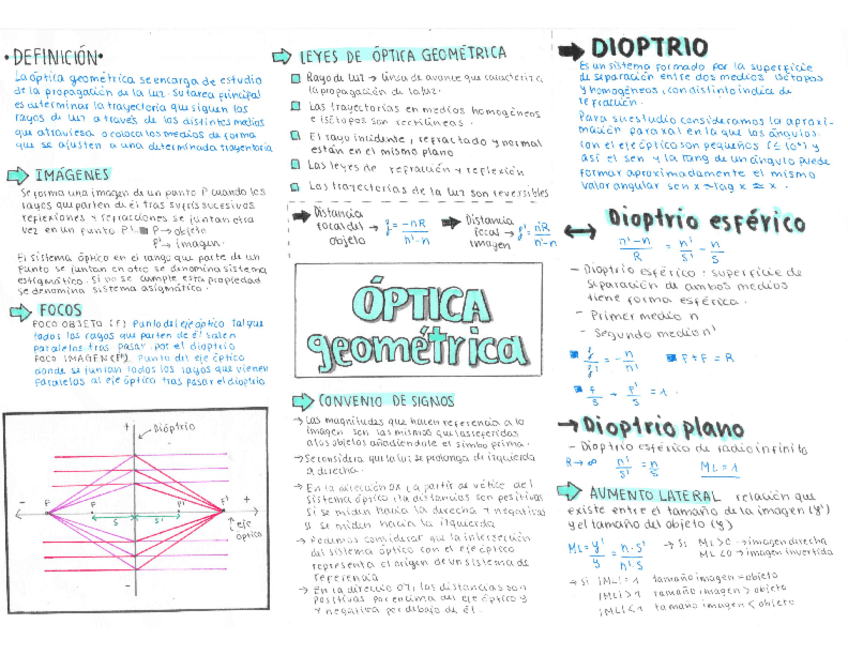 •DEFINICIÓN•
La óptica geométrica se encarga de estudio
de la propagación de la luz. Su tarea principal
es determinar la trayectoria que siguen los
rayos de luz a través de los distintos medios
que atraviesa o coloca los medios de forma
que se ajusten a una determinada trayectoria
IMÁGENES
Se forma una imagen de un punto P cuando los
rayos que parten de él tras sufrir sucesivos
reflexiones y refracciones se juntan otra
vez en un punto P'. P→ objeto
P'→ imagen.
El sistema óptico en el rango que parte de un
punto se juntan en otro se denomina sistema
estigmático. Si no se cumple esta propiedad
se denomina sistema asigmático.
FOCOS
FOCO OBJETO (F) Punto del eje óptico tal que
todos los rayos que parten de él salen
paralelos tras pasar por el dioptrio
FOCO IMAGEN (F') Punto del eje óptico
donde se juntan todos los rayos que vienen
paralelos al eje óptico tras pasar el dioptrio
+
Dióptrio
-
F
P
P'
F'
+
S
S'
eje
óptico
-
LEYES DE ÓPTICA GEOMÉTRICA
Rayo de luz → línea de avance que caracteriza
la propagación de la luz.
Las trayectorias en medios homogéneos
e isótopos son rectilíneas.
El rayo incidente, refractado y normal
están en el mismo plano
Las leyes de refracción y reflexión
Las trayectorias de la luz son reversibles
Distancia
focal del → f = -nR / n'-n
objeto
Distancia
focal → f' = n'R / n'-n
imagen
ÓPTICA
geométrica
CONVENIO DE SIGNOS
→ Las magnitudes que hacen referencia a la
imagen son las mismas que las referidas
a los objetos añadiéndole el símbo prima.
→ Se considera que la luz se prolonga de izquierda
a derecha.
→ En la dirección OX (a partir de vétice del
sistema óptico) la distancias son positivas
si se miden hacia la derecha y negativas
si se miden hacia la izquierda
→ Podemos considerar que la intersección
del sistema óptico con el eje óptico
representa el origen de un sistema de
referencia
→ En la direccio OY, las distancias son
positivas por encima del eje óptico y
y negativa por debajo de él.
DIOPTRIO
Es un sistema formado por la superficie
de separación entre dos medios isótopos
y homogéneos, con distinto indice de
refracción.
Para su estudio consideramos la aproxi-
mación paraxal en la que los ángulos
con el eje óptico son pequeños (≤ 10º) y
así el sen y la tang de un ángulo puede
formar aproximadamente el mismo
valor angular sen x ≃ tag x ≃ x.
Dioptrio esférico
n'-n / R = n' / S' - n / S
- Dioptrio esférico: superficie de
separación de ambos medios
tiene forma esférica.
- Primer medio n
- Segundo medio n'
f / f' = -n / n'
f + f' = R
f / S + f' / S' = 1.
→ Dioptrio plano
- Dioptrio esférico de radio infinito
R→∞ n' / S' = n / S ML = 1
AUMENTO LATERAL relación que
existe entre el tamaño de la imagen (y')
y el tamaño del objeto (y)
ML = y' / y = n·S' / n'·S
→ Si ML > 0 → imagen directa
ML < 0 → imagen invertida
→ Si |ML| = 1 tamaño imagen = objeto
|ML| > 1 tamaño imagen > objeto
|ML| < 1 tamaño imagen < objeto